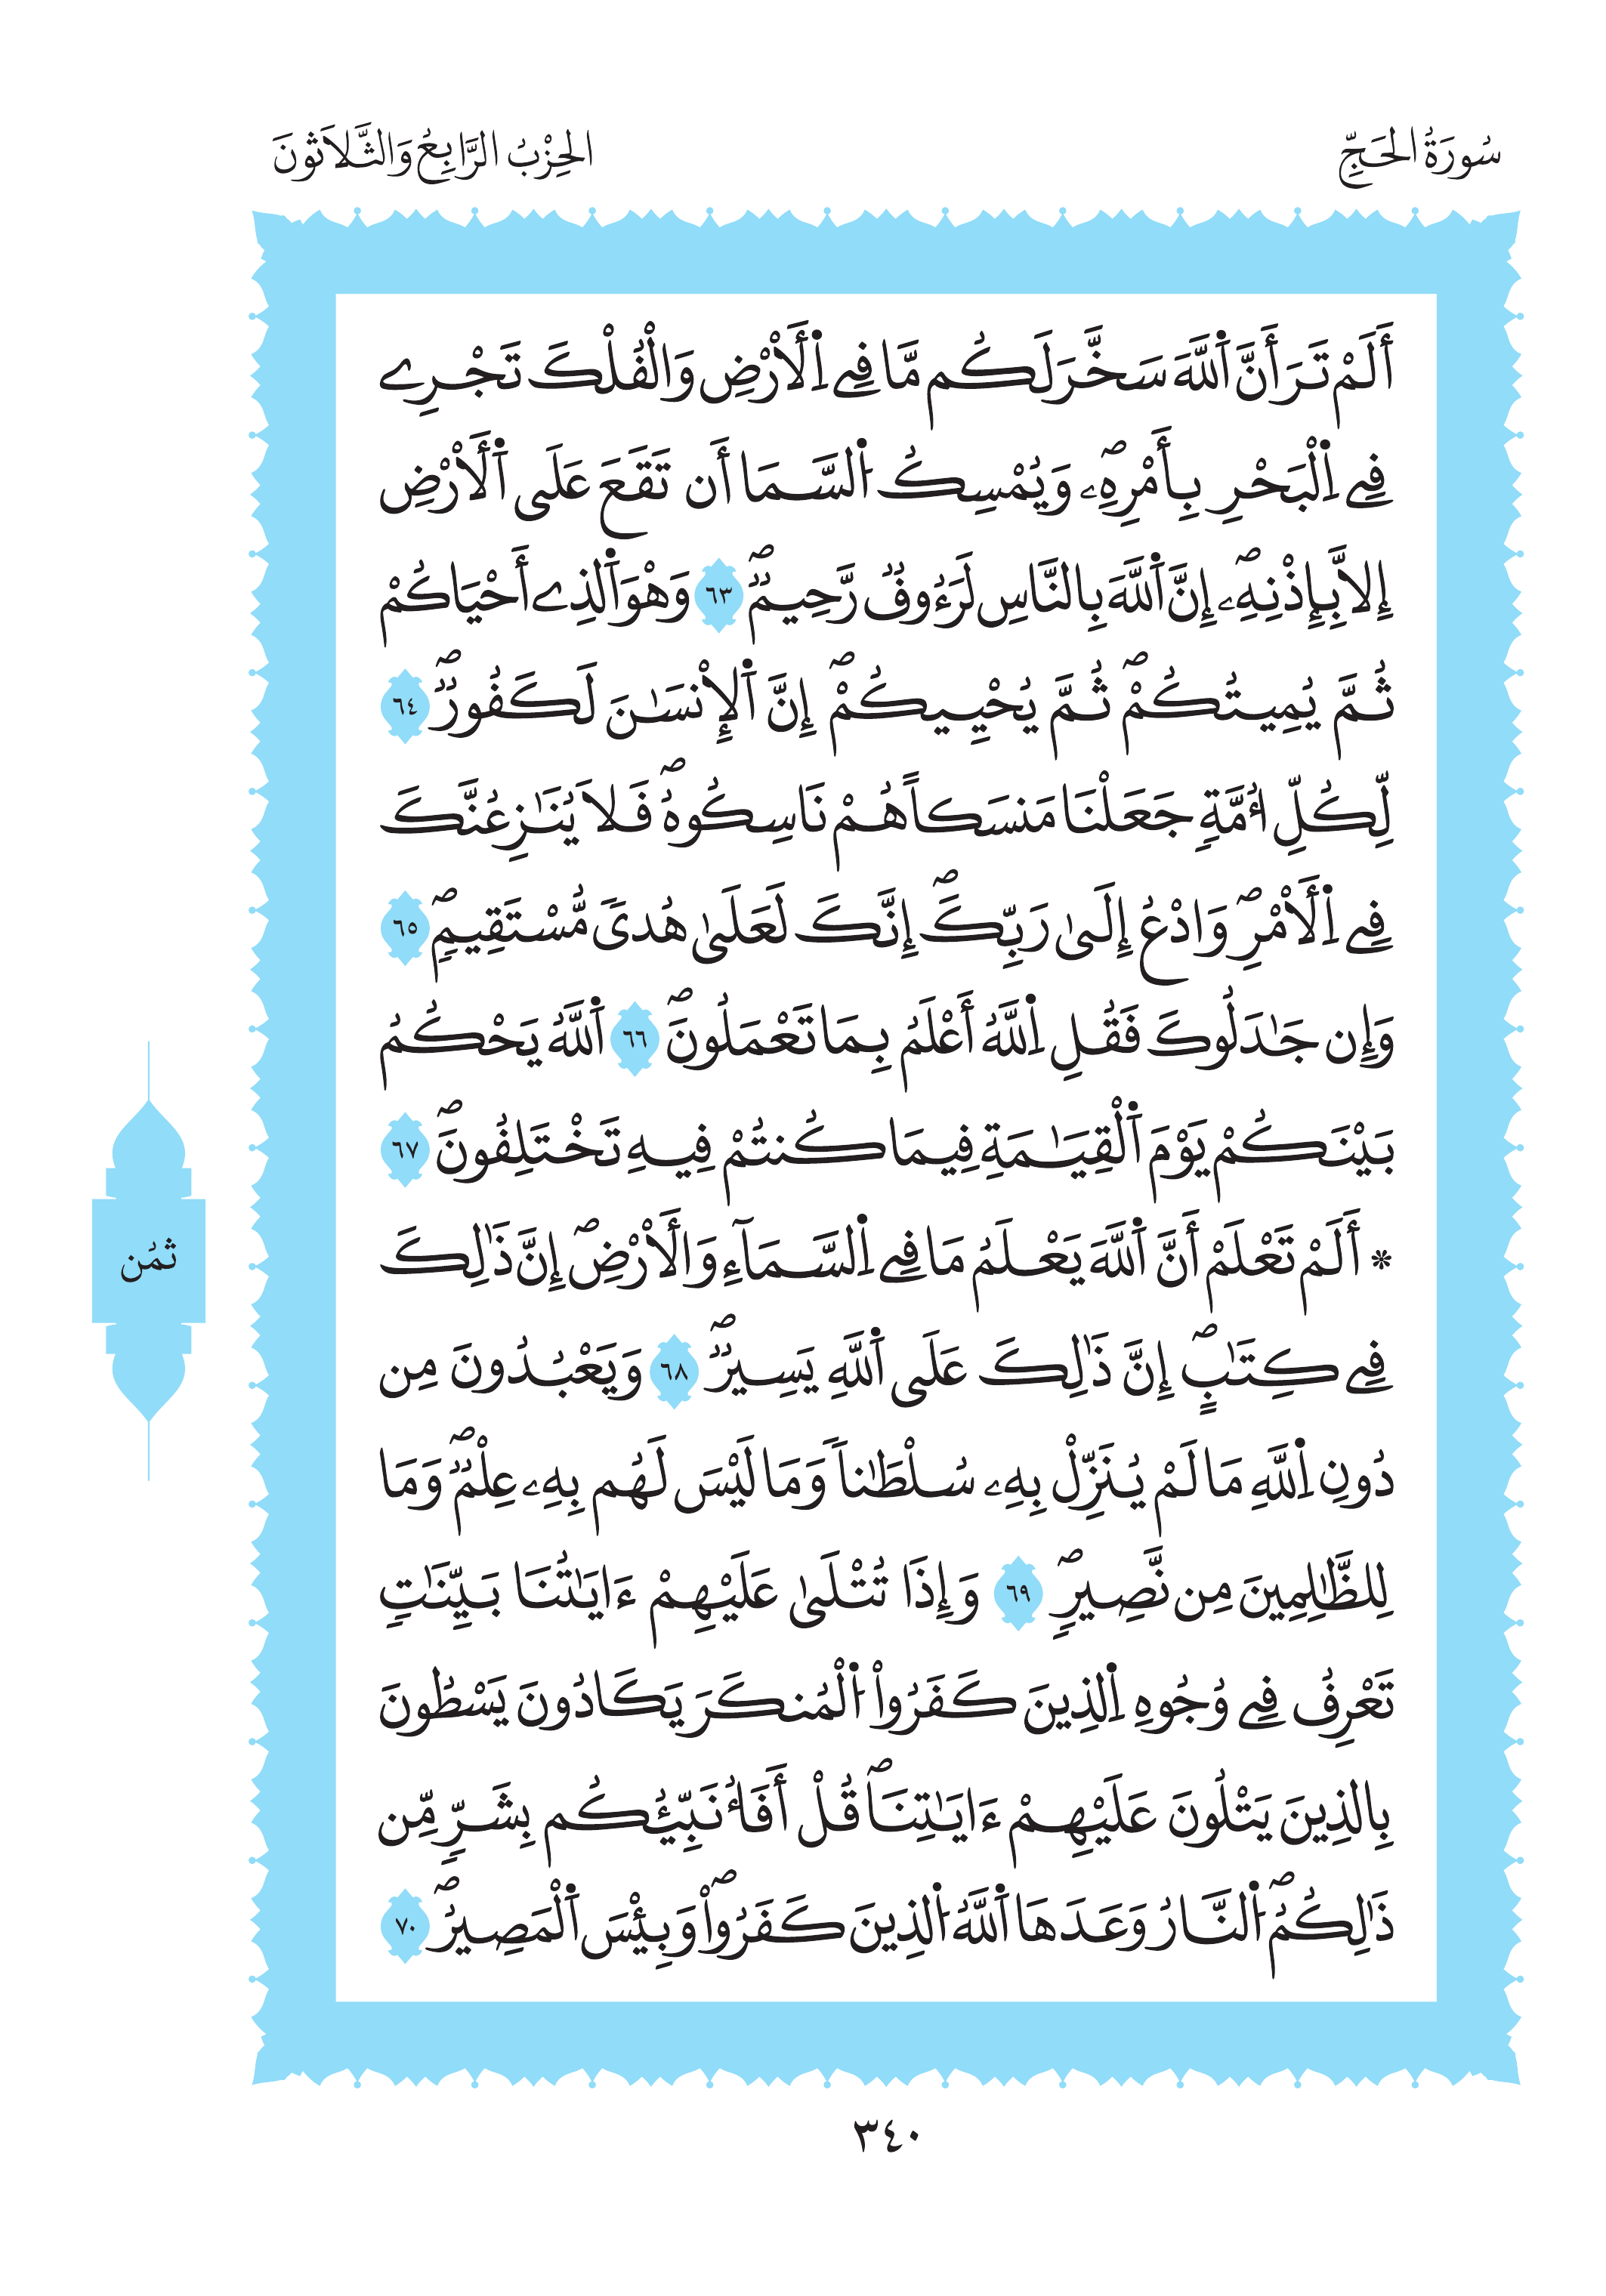 سُورَةُ الحَجِّ
الحِزْبُ الرَّابِعُ وَالثَّلَاثُونَ
أَلَمْ تَرَ أَنَّ اَ۬للَّهَ سَخَّرَ لَكُم مَّا فِے اِ۬لْأَرْضِ وَالْفُلْكَ تَجْرِے
فِے اِ۬لْبَحْرِ بِأَمْرِهِۦۖ وَيُمْسِكُ اُ۬لسَّمَا أَن تَقَعَ عَلَى اَ۬لْأَرْضِ
إِلَّا بِإِذْنِهِۦۖ إِنَّ اَ۬للَّهَ بِالنَّاسِ لَرَءُوفٞ رَّحِيمٞۖ ٦٣ وَهْوَ اَ۬لذِےٓ أَحْيَاكُمْ
ثُمَّ يُمِيتُكُمْۖ ثُمَّ يُحْيِيكُمْۖ إِنَّ اَ۬لْإِنسَٰنَ لَكَفُورٞۖ ٦٤
لِّكُلِّ أُمَّةٖ جَعَلْنَا مَنسَكاً هُمْ نَاسِكُوهُۖ فَلَا يُنَٰزِعُنَّكَ
فِے اِ۬لْأَمْرِۖ وَادْعُ إِلَىٰ رَبِّكَۖ إِنَّكَ لَعَلَىٰ هُدىٗ مُّسْتَقِيمٖۖ ٦٥
وَإِن جَٰدَلُوكَ فَقُلِ اِ۬للَّهُ أَعْلَمُ بِمَا تَعْمَلُونَۖ ٦٦ اَ۬للَّهُ يَحْكُمُ
بَيْنَكُمْ يَوْمَ اَ۬لْقِيَٰمَةِ فِيمَا كُنتُمْ فِيهِ تَخْتَلِفُونَۖ ٦٧
* أَلَمْ تَعْلَمْ أَنَّ اَ۬للَّهَ يَعْلَمُ مَا فِے اِ۬لسَّمَآءِ وَالْأَرْضِۖ إِنَّ ذَٰلِكَ
فِے كِتَٰبٍۖ إِنَّ ذَٰلِكَ عَلَى اَ۬للَّهِ يَسِيرٞۖ ٦٨ وَيَعْبُدُونَ مِن
ثمُن
دُونِ اِ۬للَّهِ مَا لَمْ يُنَزِّلْ بِهِۦ سُلْطَٰناٗ وَمَا لَيْسَ لَهُم بِهِۦ عِلْمٞۖ وَمَا
لِلظَّٰلِمِينَ مِن نَّصِيرٖۖ ٦٩ وَإِذَا تُتْلَىٰ عَلَيْهِمْ ءَايَٰتُنَا بَيِّنَٰتٖ
تَعْرِفُ فِے وُجُوهِ اِ۬لذِينَ كَفَرُواْ اُ۬لْمُنكَرَ يَكَادُونَ يَسْطُونَ
بِالذِينَ يَتْلُونَ عَلَيْهِمْ ءَايَٰتِنَاۖ قُلْ أَفَأُنَبِّئُكُم بِشَرّٖ مِّن
ذَٰلِكُمُۖ اُ۬لنَّارُ وَعَدَهَا اَ۬للَّهُ اُ۬لذِينَ كَفَرُواْۖ وَبِئْسَ اَ۬لْمَصِيرُۖ ٧٠
٣٤٠